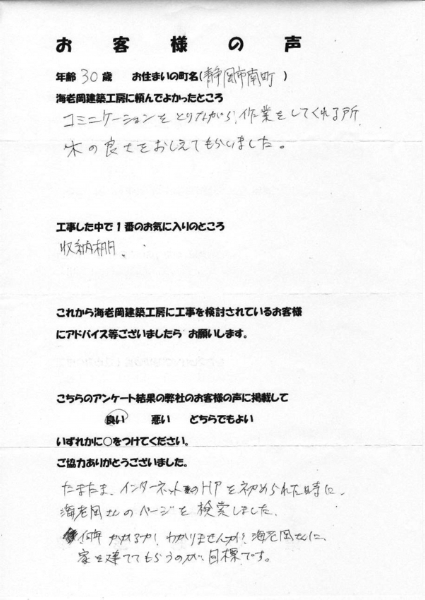 お客様の声
年齢 30 歳 お住まいの町名(静岡市南町 )
海老岡建築工房に頼んでよかったところ
コミニケーションをとりながら、作業をしてくれる所
木の良さをおしえてもらいました。
工事した中で1番のお気に入りのところ
収納棚、
これから海老岡建築工房に工事を検討されているお客様
にアドバイス等ございましたら お願いします。
こちらのアンケート結果の弊社のお客様の声に掲載して
良い 悪い どちらでもよい
いずれかに○をつけてください。
ご協力ありがとうございました。
たまたま、インターネットのHPを初められた時に、
海老岡さんのページを検索しました。
何年かかるか?わかりませんが?海老岡さんに、
家を建ててもらうのが、目標です。